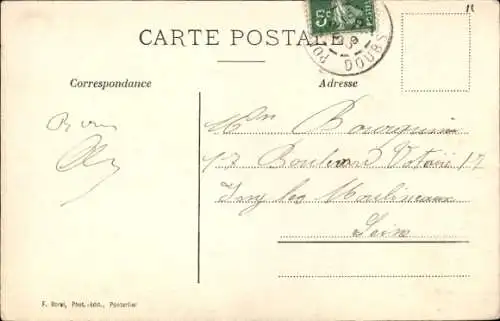 CARTE POSTALE
5c
DOUBS
Correspondance
Adresse
Bourquin
17 Boulevard Voltaire 17
Issy les Moulineaux
Seine
F. Borel, Phot.-édit., Pontarlier